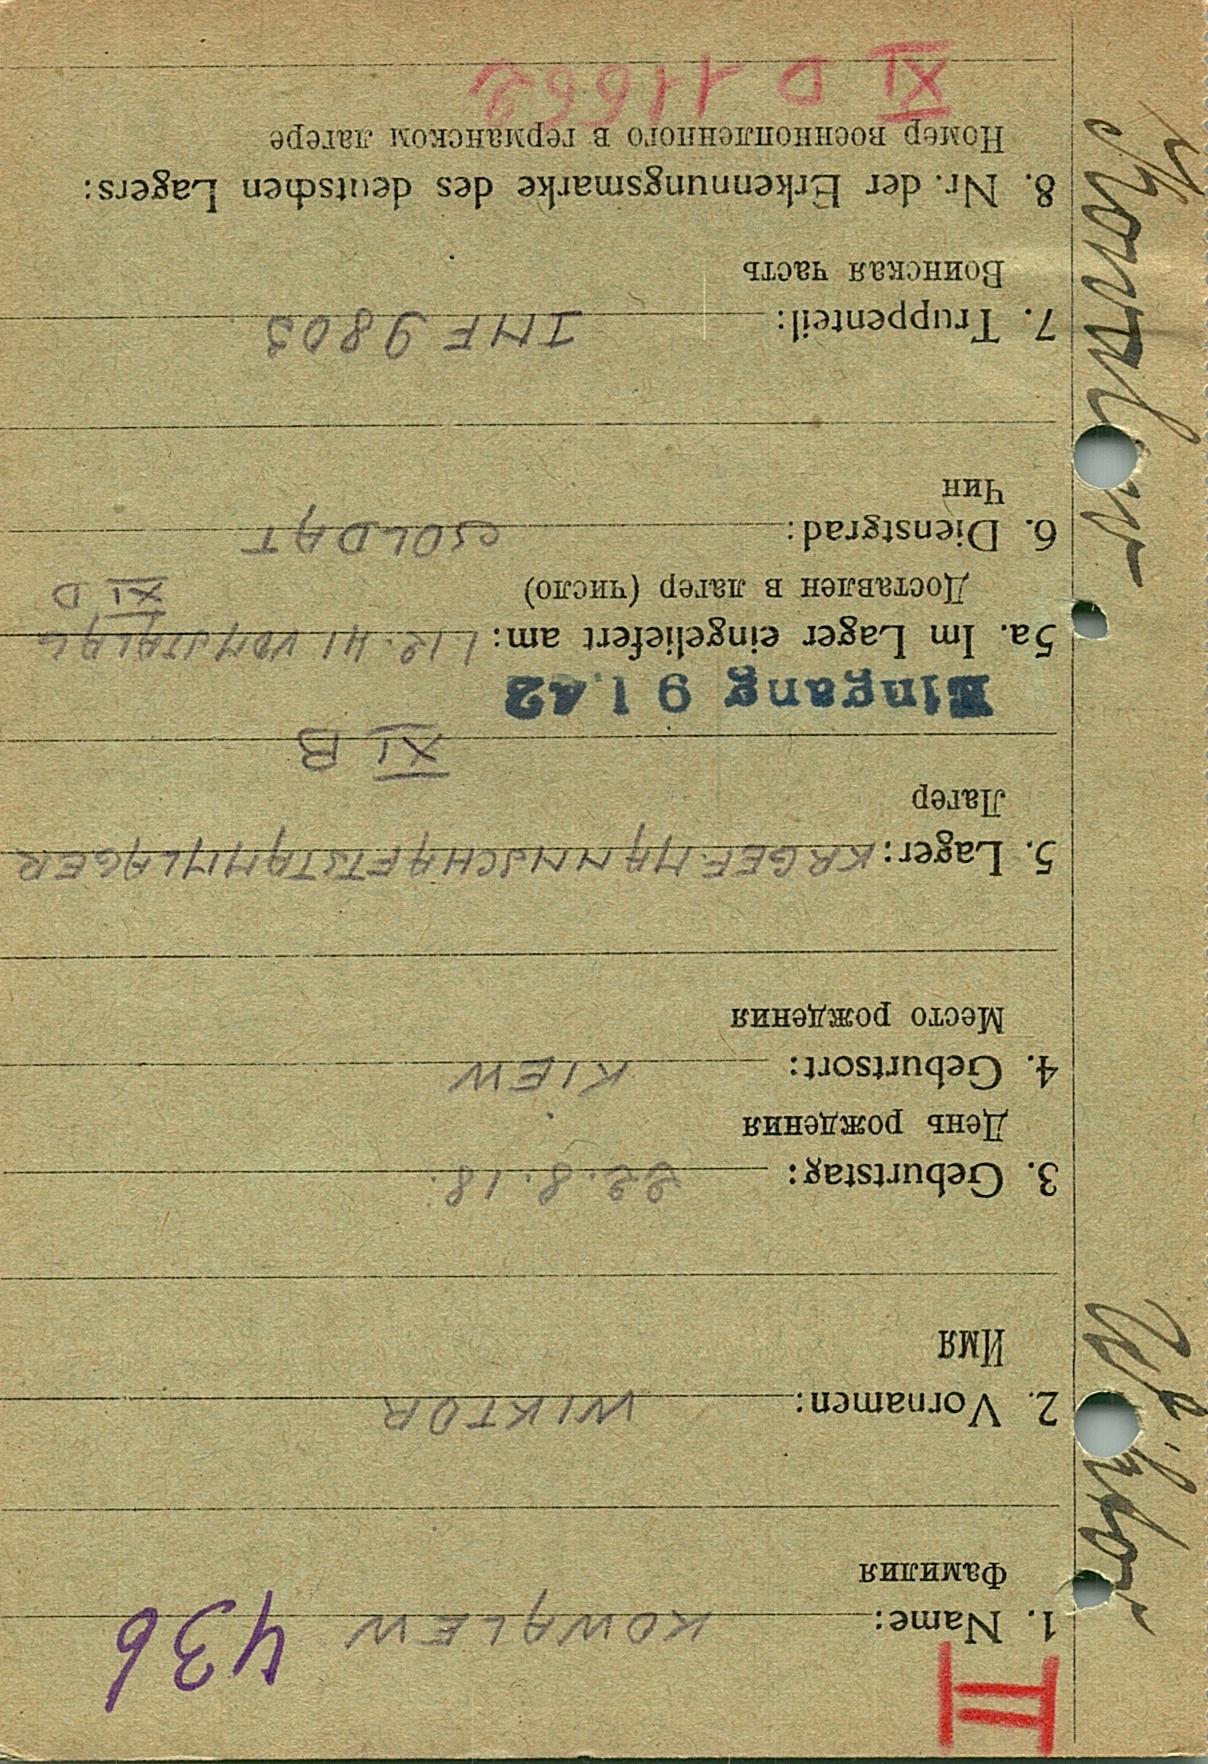 II
436
1. Name: KOWALEW
Фамилия
2. Vornamen: WIKTOR
Имя
3. Geburtstag: 22.8.18.
День рождения
4. Geburtsort: KIEW
Место рождения
5. Lager: KRGEF. MANNSCHAFTSTAMMLAGER
Лагер
XI B
Eingang 9 1.42
5a. Im Lager eingeliefert am: 1.12.41 VOM STALAG
Доставлен в лагер (число) XI D
6. Dienstgrad: SOLDAT
Чин
7. Truppenteil: INF 9803
Воинская часть
8. Nr. der Erkennungsmarke des deutschen Lagers:
Номер военнопленного в германском лагере
XI D 11662
Kowalew
Wiktor